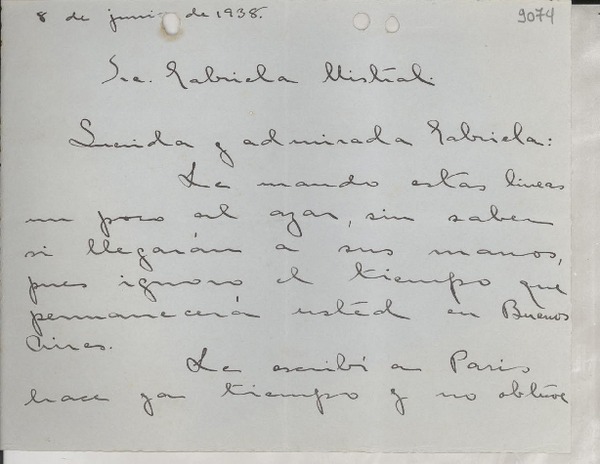 8 de junio de 1938.
9074
Sra. Gabriela Mistral.
Querida y admirada Gabriela:
Le mando estas lineas
un poco al azar, sin saber
si llegarán a sus manos,
pues ignoro el tiempo que
permanecerá usted en Buenos
Aires.
Le escribí a Paris
hace ya tiempo y no obtuve